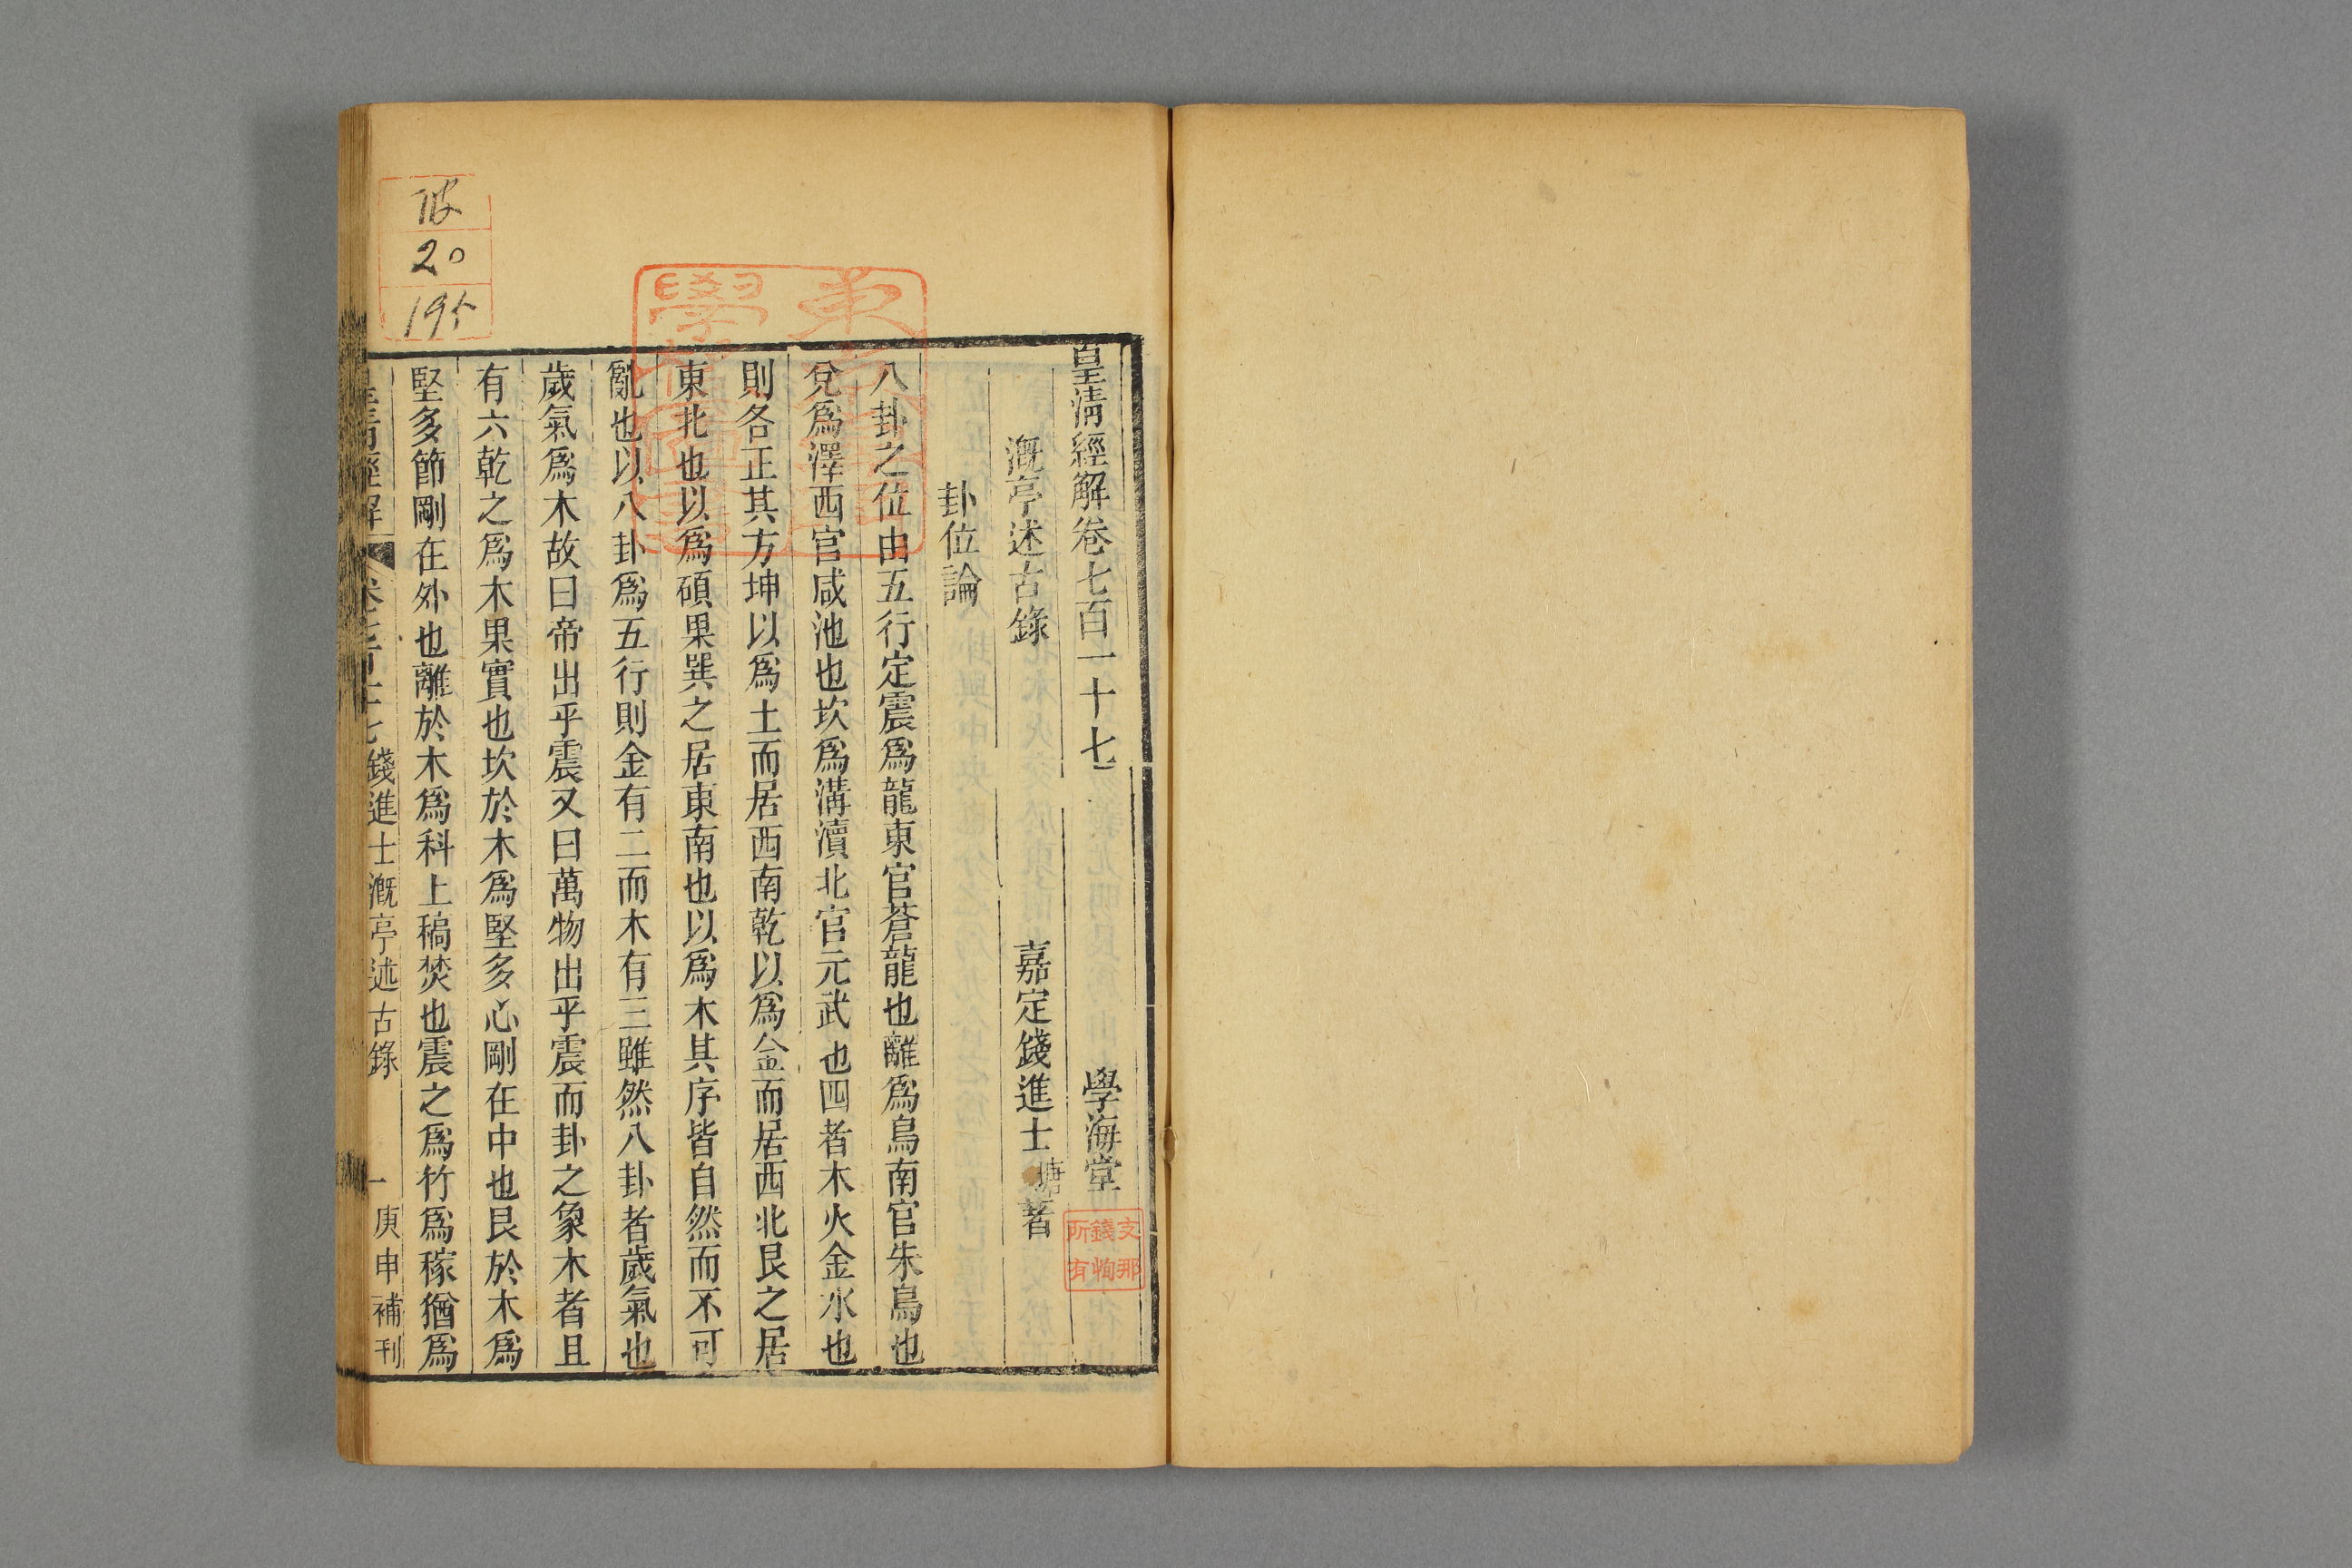 皇清經解卷七百一十七
學海堂
溉亭述古錄
嘉定錢進士塘著
卦位論
八卦之位由五行定震爲龍東官蒼龍也離爲鳥南官朱鳥也
兌爲澤西官咸池也坎爲溝瀆北官元武也四者木火金水也
則各正其方坤以爲土而居西南乾以爲金而居西北艮之居
東北也以爲碩果巽之居東南也以爲木其序皆自然而不可
亂也以八卦爲五行則金有二而木有三雖然八卦者歲氣也
歲氣爲木故曰帝出乎震又曰萬物出乎震而卦之象木者且
有六乾之爲木果實也坎於木爲堅多心剛在中也艮於木爲
堅多節剛在外也離於木爲科上稿焚也震之爲竹爲稼猶爲
皇清經解
卷七百十七錢進士溉亭述古錄
一
庚申補刊
支那
錢恂
所有
20
195